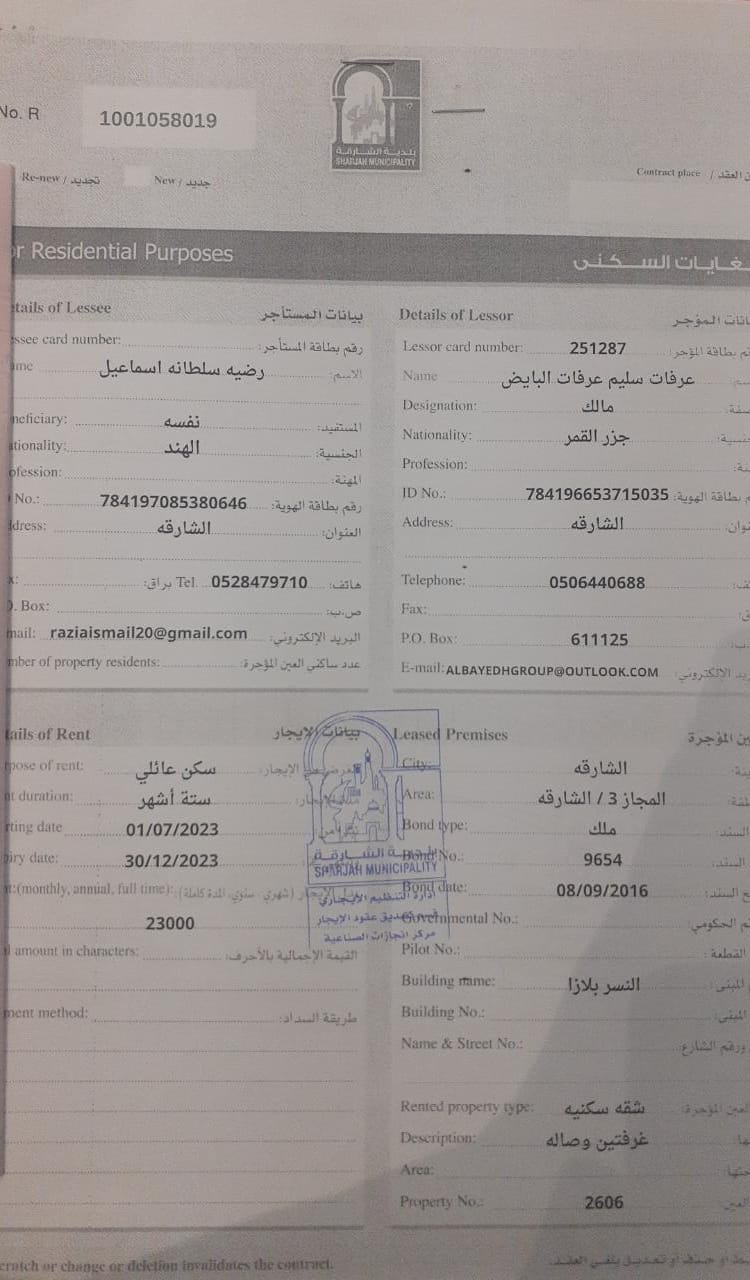 No. R 1001058019
بلدية الشارقة
SHARJAH MUNICIPALITY
Re-new / تجديد New / جديد
Contract place / العقد
Residential Purposes لغايات السكنى
Details of Lessor
Lessee بيانات المستأجر
card number: رقم بطاقة المستأجر:
رضيه سلطانه اسماعيل الاسم:
نفسه المستفيد:
الهند الجنسية:
المهنة:
No.: 784197085380646 رقم بطاقة الهوية:
الشارقه العنوان:
براق: Tel. 0528479710 هاتف:
Box: ص.ب:
raziaismail20@gmail.com البريد الإلكتروني:
of property residents: عدد ساكني العين المؤجرة:
المؤجر
Lessor card number: 251287 بطاقة المؤجر:
Name عرفات سليم عرفات البايض
Designation: مالك
Nationality: جزر القمر
Profession:
ID No.: 784196653715035 بطاقة الهوية:
Address: الشارقه
Telephone: 0506440688
Fax:
P.O. Box: 611125
E-mail: ALBAYEDHGROUP@OUTLOOK.COM الإلكتروني:
of Rent بيانات الإيجار
of rent: سكن عائلي الإيجار:
duration: ستة أشهر
date 01/07/2023
date: 30/12/2023
(monthly, annual, full time): (شهري، سنوي، المدة كاملة)
23000
amount in characters: القيمة الإجمالية بالأحرف:
method: طريقة السداد:
بلدية الشارقة
SHARJAH MUNICIPALITY
إدارة التنظيم الإيجاري
تصديق عقود الإيجار
مركز انجازات الصناعية
Leased Premises المؤجرة
City: الشارقه
Area: المجاز 3 / الشارقه
Bond type: ملك السند:
Bond No.: 9654 السند:
Bond date: 08/09/2016 السند:
Governmental No.: الحكومي:
Pilot No.: القطعة:
Building name: النسر بلازا المبنى:
Building No.: المبنى:
Name & Street No.: ورقم الشارع:
Rented property type: شقه سكنيه العين المؤجرة:
Description: غرفتين وصاله
Area:
Property No.: 2606 العين
or change or deletion invalidates the contract. أو حذف أو تعديل يلغي العقد.